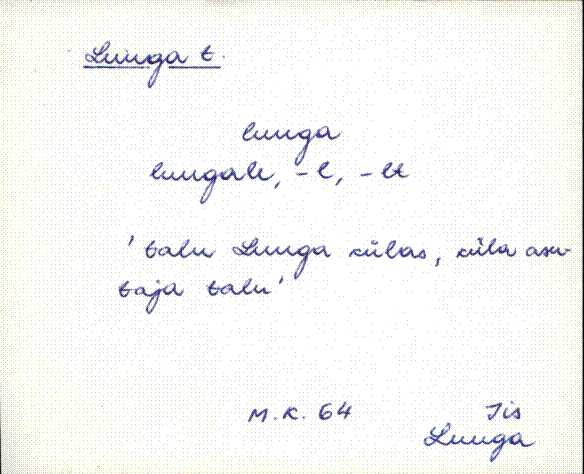 Luuga t.
luuga
luugale, -l, -lt
'talu Luuga külas, küla asu-
taja talu'
M.K. 64 Iis
Luuga